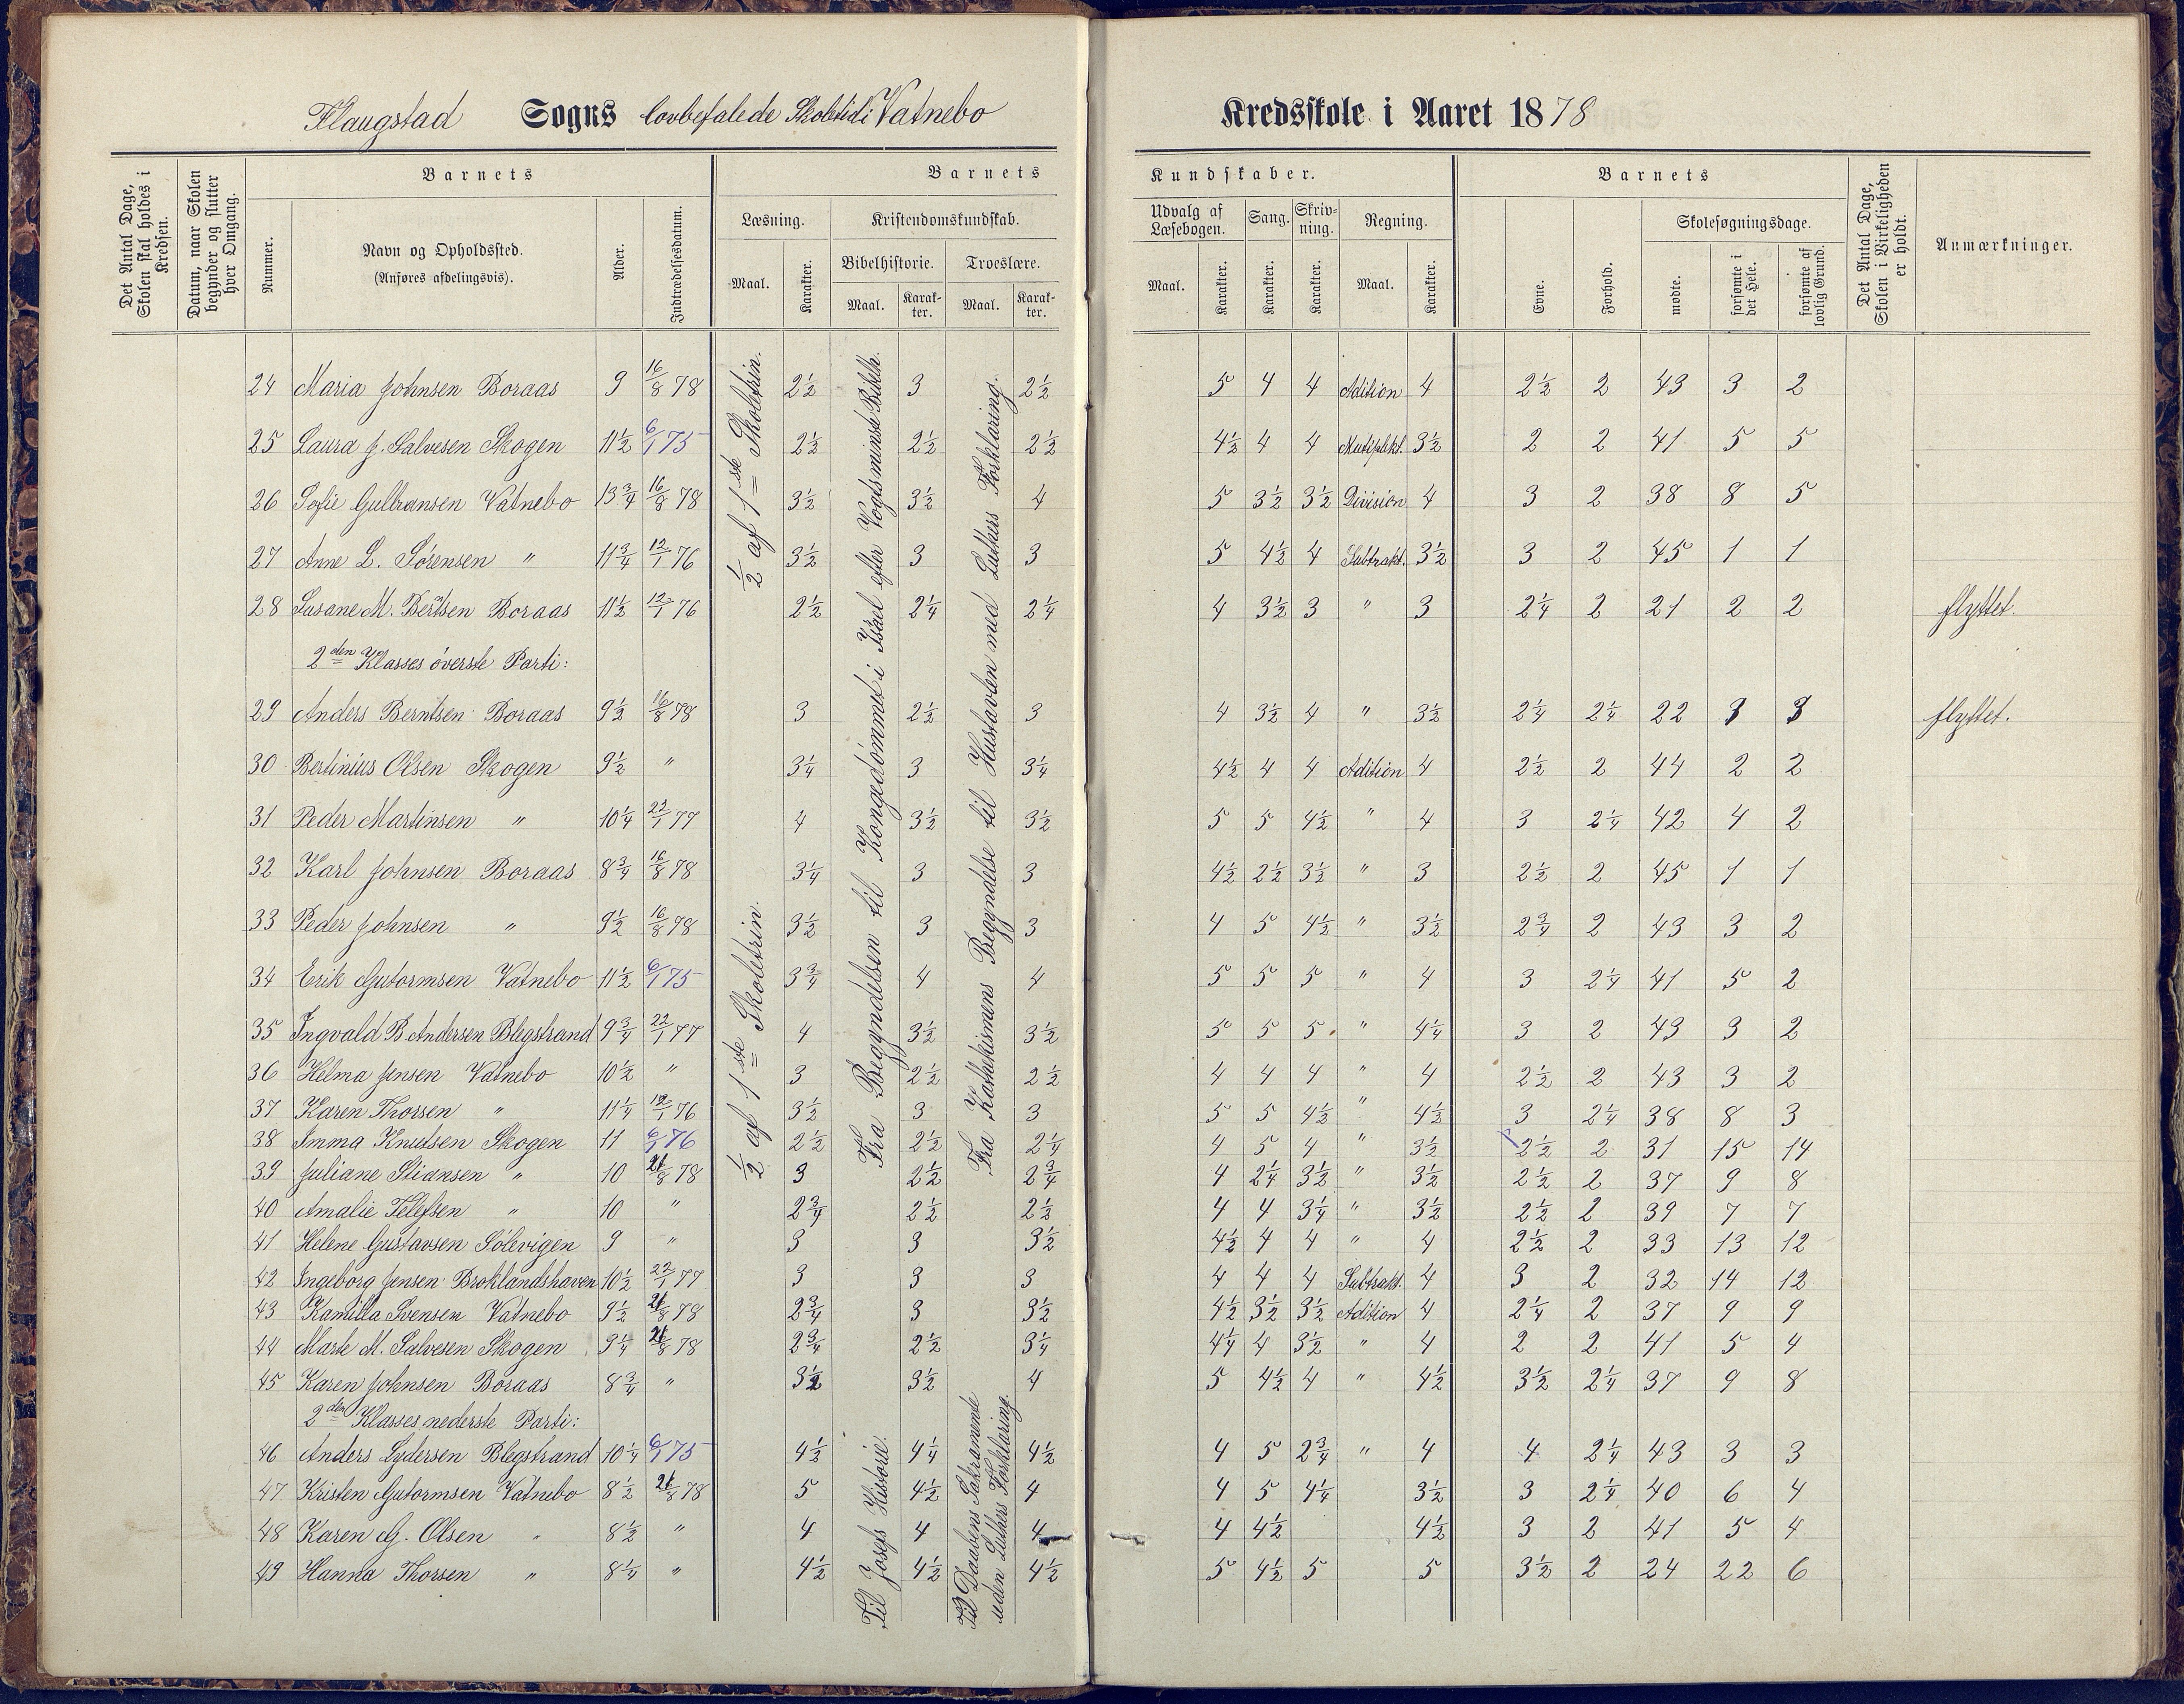 Flaugstad Sogns lovbefalede Skoletid i Vatnebo Kredsskole i Aaret 1878
Det Antal Dage, Skolen skal holdes i Kredsen.
Datum, naar Skolen begynder og slutter hver Omgang.
Barnets
Nummer.
Navn og Opholdssted.
(Anføres afdelingsvis).
Alder.
Indtrædelsesdatum.
Barnets Kundskaber.
Læsning.
Maal. Karakter.
Kristendomskundskab.
Bibelhistorie. Troeslære.
Maal. Karakter. Maal. Karakter.
Udvalg af Læsebogen. Sang. Skrivning. Regning.
Maal. Karakter. Karakter. Karakter. Maal. Karakter.
Barnets
Evne. Forhold.
Skolesøgningsdage.
mødte. forsømte i det Hele. forsømte af lovlig Grund.
Det Antal Dage, Skolen i Virkeligheden er holdt.
Anmærkninger.
½ af 1ste Skoletrin.
Fra Begyndelsen til Kongedømmet i Israel efter Vogts mindste Bibelh.
Fra Kathekismens Begyndelse til Hustavlen med Luthers Forklaring.
24 Maria Johnsen Boraas 9 16/8 78 2½ 3 2½ 5 4 4 Adition 4 2½ 2 43 3 2
25 Laura J. Salvesen Skogen 11½ 6/1 75 2½ 2½ 2½ 4½ 4 4 Mutiplkt. 3½ 2 2 41 5 5
26 Sofie Gulbransen Vatnebo 13¾ 16/8 78 3½ 3½ 4 5 3½ 3½ Division 4 3 2 38 8 5
27 Anne L. Sørensen " 11¾ 12/1 76 3½ 3 3 5 4½ 4 Subtrakt. 3½ 3 2 45 1 1
28 Susane M. Berntsen Boraas 11½ 12/1 76 2½ 2¼ 2¼ 4 3½ 3 " 3 2¼ 2 21 2 2 flyttet.
2den Klasses øverste Parti:
29 Anders Berntsen Boraas 9½ 16/8 78 3 2½ 3 4 3½ 4 " 3½ 2¼ 2¼ 22 3 3 flyttet.
30 Bertinius Olsen Skogen 9½ " 3¼ 3 3¼ 4½ 4 4 Adition 4 2½ 2 44 2 2
31 Peder Martinsen " 10¼ 22/1 77 4 3½ 3½ 5 5 4½ " 4 3 2¼ 42 4 2
32 Karl Johnsen Boraas 8¾ 16/8 78 3¼ 3 3 4½ 2½ 3½ " 3 2½ 2 45 1 1
33 Peder Johnsen " 9½ 16/8 78 3½ 3 3 4 5 4½ " 3½ 2¾ 2 43 3 2
34 Erik Gutormsen Vatnebo 11½ 6/1 75 3¾ 4 4 5 5 5 " 4 3 2¼ 41 5 2
½ af 1ste Skoletrin.
35 Ingvald B. Andersen Blegstrand 9¾ 22/1 77 4 3½ 3½ 5 5 5 " 4¼ 3 2 43 3 2
36 Helma Jensen Vatnebo 10½ " 3 2½ 2½ 4 4 4 " 4 2½ 2 43 3 2
37 Karen Thorsen " 11¼ 12/1 76 3½ 3 3 5 5 4½ " 4½ 3 2¼ 38 8 3
38 Imma Knudsen Skogen 11 6/1 76 2½ 2½ 2¼ 4 5 4 " 3½ 2½ 2 31 15 14
39 Juliane Stiansen " 10 21/8 78 3 2½ 2¾ 4 2¼ 3½ " 3½ 2½ 2 37 9 8
40 Amalie Telefsen " 10 " 2¾ 2½ 2½ 4 4 3¼ " 3½ 2½ 2 39 7 7
41 Helene Gustavsen Sølevigen 9 " 3 3 3½ 4½ 4 4 " 4 2½ 2 33 13 12
42 Ingeborg Jensen Broklandshaven 10½ 22/1 77 3 3 3 4 4 4 Subtrakt. 4 3 2 32 14 12
43 Kamilla Svensen Vatnebo 9½ 21/8 78 2¾ 3 3½ 4½ 3½ 3½ Adition 4 2¼ 2 37 9 9
44 Marte M. Salvesen Skogen 9¼ 21/8 78 2¾ 2½ 3¼ 4¼ 4 3½ " 4 2 2 41 5 4
45 Karen Johnsen Boraas 8¾ " 3½ 3½ 4 5 4½ 4 " 4½ 3½ 2¼ 37 9 8
2den Klasses nederste Parti:
Til Josefs Historie.
Til Daabens Sakramente uden Luthers Forklaring.
46 Anders Lydersen Blegstrand 10¼ 6/1 75 4½ 4¼ 4½ 4 5 2¾ " 4 4 2¼ 43 3 3
47 Kristen Gutormsen Vatnebo 8½ 21/8 78 5 4½ 4 4 5 4¼ 3½ 3 2¼ 40 6 4
48 Karen G. Olsen " 8½ " 4 4 4 4 4½ 4½ 3 2 41 5 4
49 Hanna Thorsen " 8¼ " 4½ 4½ 4½ 5 4½ 5 5 3½ 2 24 22 6